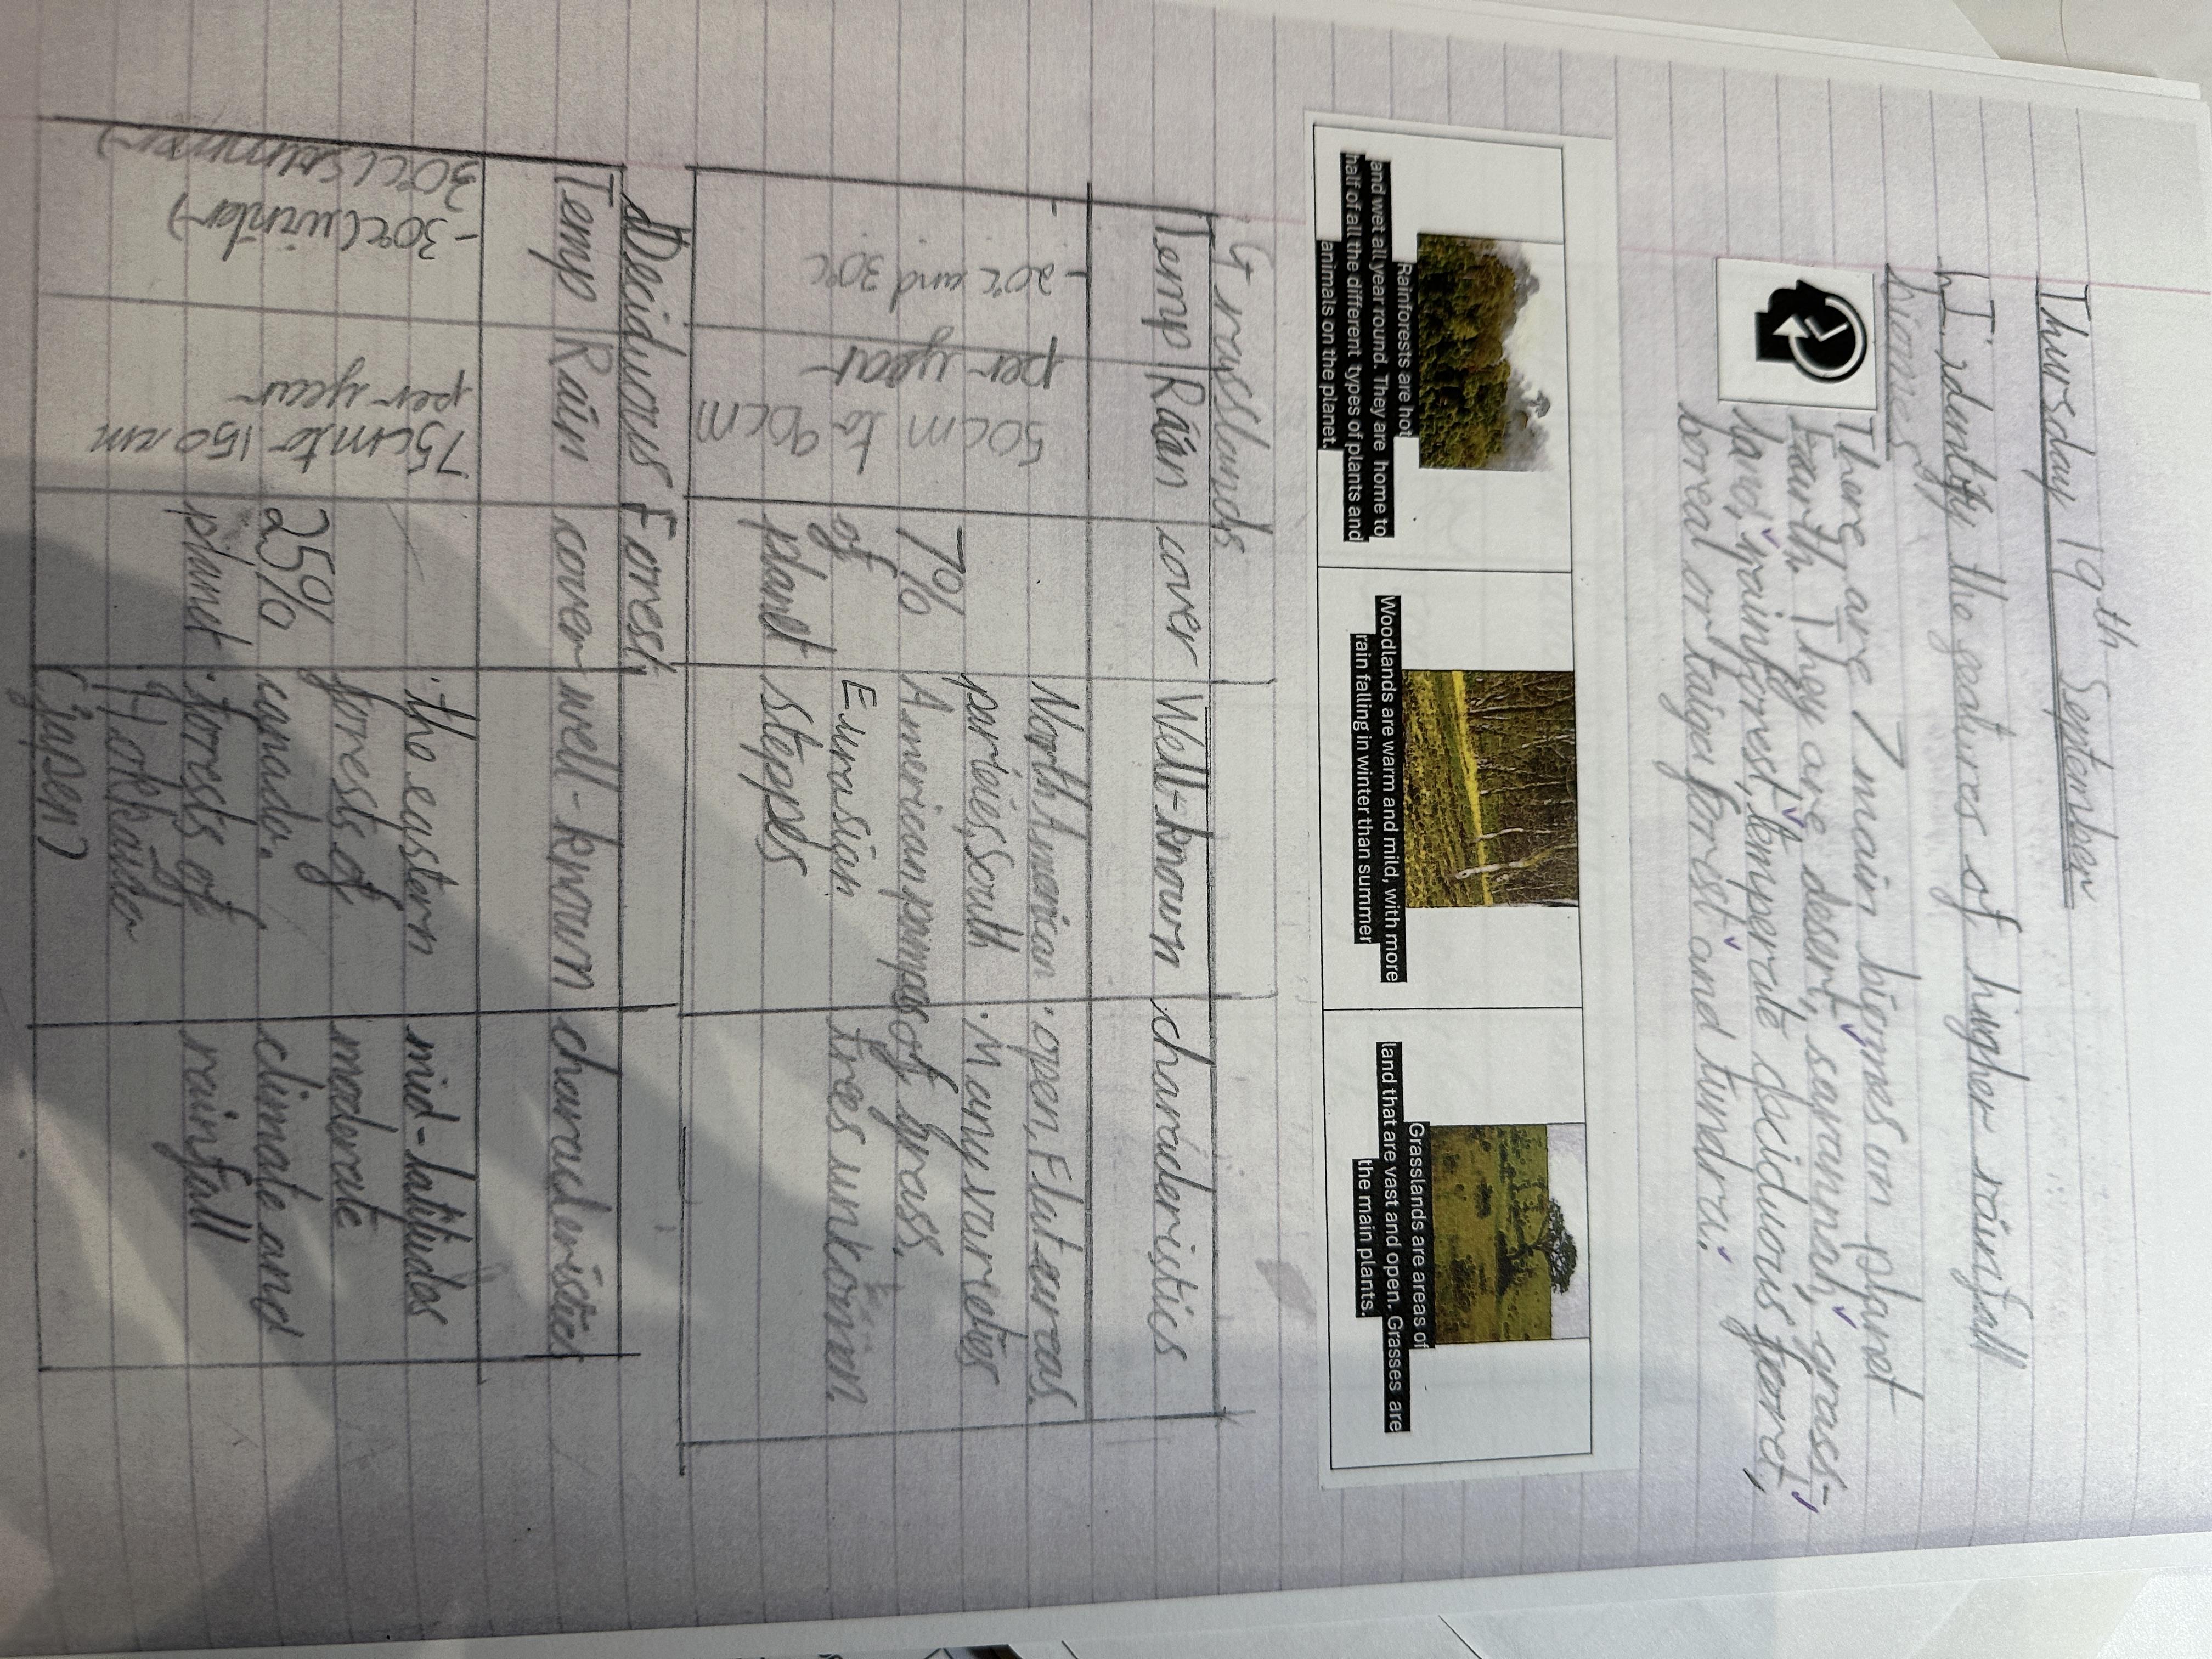 Thursday 19th September
LI Identify the features of higher rainfall
biomes
There are 7 main biomes on planet
Earth. They are desert, savannah, grass-
land, rainforrest, temperate deciduous forret,
boreal or taiga forrest and tundra.
Rainforests are hot
and wet all year round. They are home to
half of all the different types of plants and
animals on the planet.
Woodlands are warm and mild, with more
rain falling in winter than summer
Grasslands are areas of
land that are vast and open. Grasses are
the main plants.
Grasslands
Temp Rain cover Well-known charaderistics
-20°c and 30°c
50cm to 90cm
per year
7%
of
planet
North American
pariéies, south
American pampas
Eurasian
steppes
· open, Flat areas.
· Many varieties
of grass.
trees unkomen.
Deciduous Forrest
Temp Rain cover well-known charaderistics
30°c (summer)
-30°c (winter)
75cm to 150 cm
per year
25%
planet
· the eastern
forrests of
canada.
· forrests of
Hokkaido
(japen)
mid-latitudes
moderate
climate and
rainfall